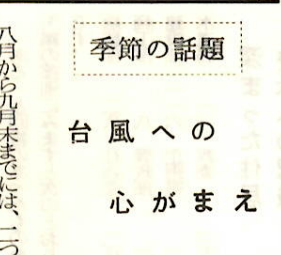 季節の話題
台風への
心がまえ
八月から九月末までには、二つ